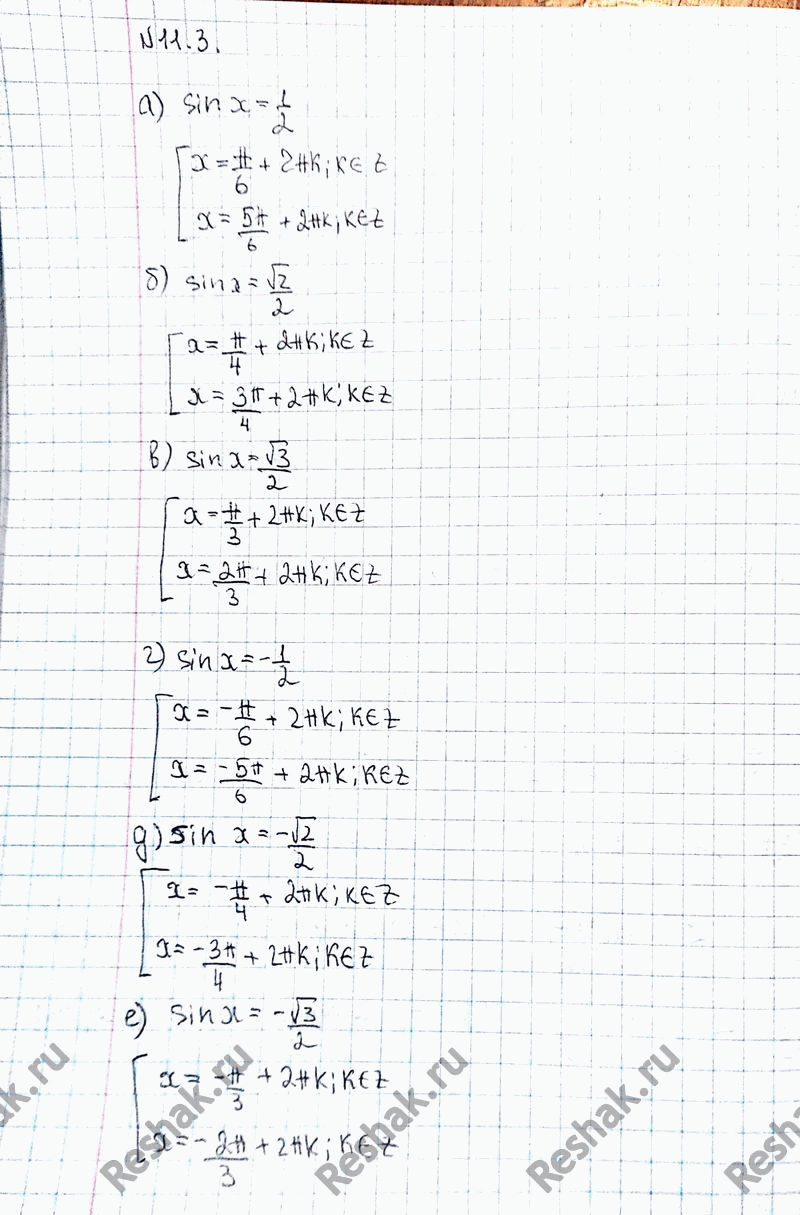 N11.3.
а) sin x = 1/2
x = π/6 + 2πk; k∈Z
x = 5π/6 + 2πk; k∈Z
б) sin x = √2/2
x = π/4 + 2πk; k∈Z
x = 3π/4 + 2πk; k∈Z
в) sin x = √3/2
x = π/3 + 2πk; k∈Z
x = 2π/3 + 2πk; k∈Z
г) sin x = -1/2
x = -π/6 + 2πk; k∈Z
x = -5π/6 + 2πk; k∈Z
д) sin x = -√2/2
x = -π/4 + 2πk; k∈Z
x = -3π/4 + 2πk; k∈Z
е) sin x = -√3/2
x = -π/3 + 2πk; k∈Z
x = -2π/3 + 2πk; k∈Z
Reshak.ru
Reshak.ru
Reshak.ru
Reshak.ru
ak.ru